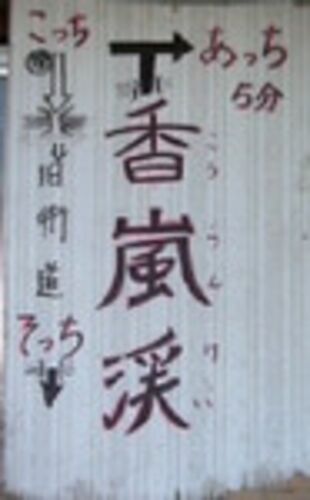 こっち
あっち
5分
香嵐渓
こうらんけい
旧街道
そっち